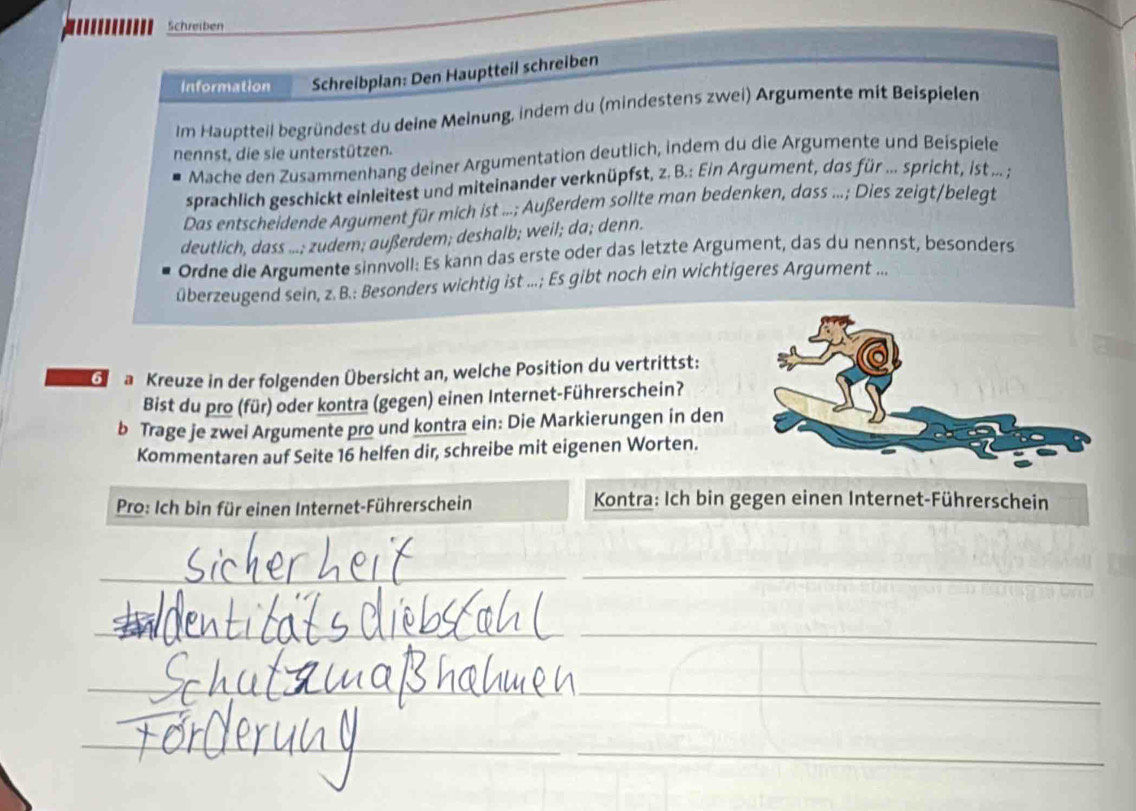 Schreiben
Information Schreibplan: Den Hauptteil schreiben
Im Hauptteil begründest du deine Meinung, indem du (mindestens zwei) Argumente mit Beispielen
nennst, die sie unterstützen.
▪ Mache den Zusammenhang deiner Argumentation deutlich, indem du die Argumente und Beispiele
sprachlich geschickt einleitest und miteinander verknüpfst, z. B.: Ein Argument, das für ... spricht, ist ... ;
Das entscheidende Argument für mich ist ...; Außerdem sollte man bedenken, dass ...; Dies zeigt/belegt
deutlich, dass ...; zudem; außerdem; deshalb; weil; da; denn.
▪ Ordne die Argumente sinnvoll: Es kann das erste oder das letzte Argument, das du nennst, besonders
überzeugend sein, z. B.: Besonders wichtig ist ...; Es gibt noch ein wichtigeres Argument ...
6 a Kreuze in der folgenden Übersicht an, welche Position du vertrittst:
Bist du pro (für) oder kontra (gegen) einen Internet-Führerschein?
b Trage je zwei Argumente pro und kontra ein: Die Markierungen in den
Kommentaren auf Seite 16 helfen dir, schreibe mit eigenen Worten.
Pro: Ich bin für einen Internet-Führerschein
Kontra: Ich bin gegen einen Internet-Führerschein
Sicherheit
Identitätsdiebstahl
Schutzmaßnahmen
Förderung